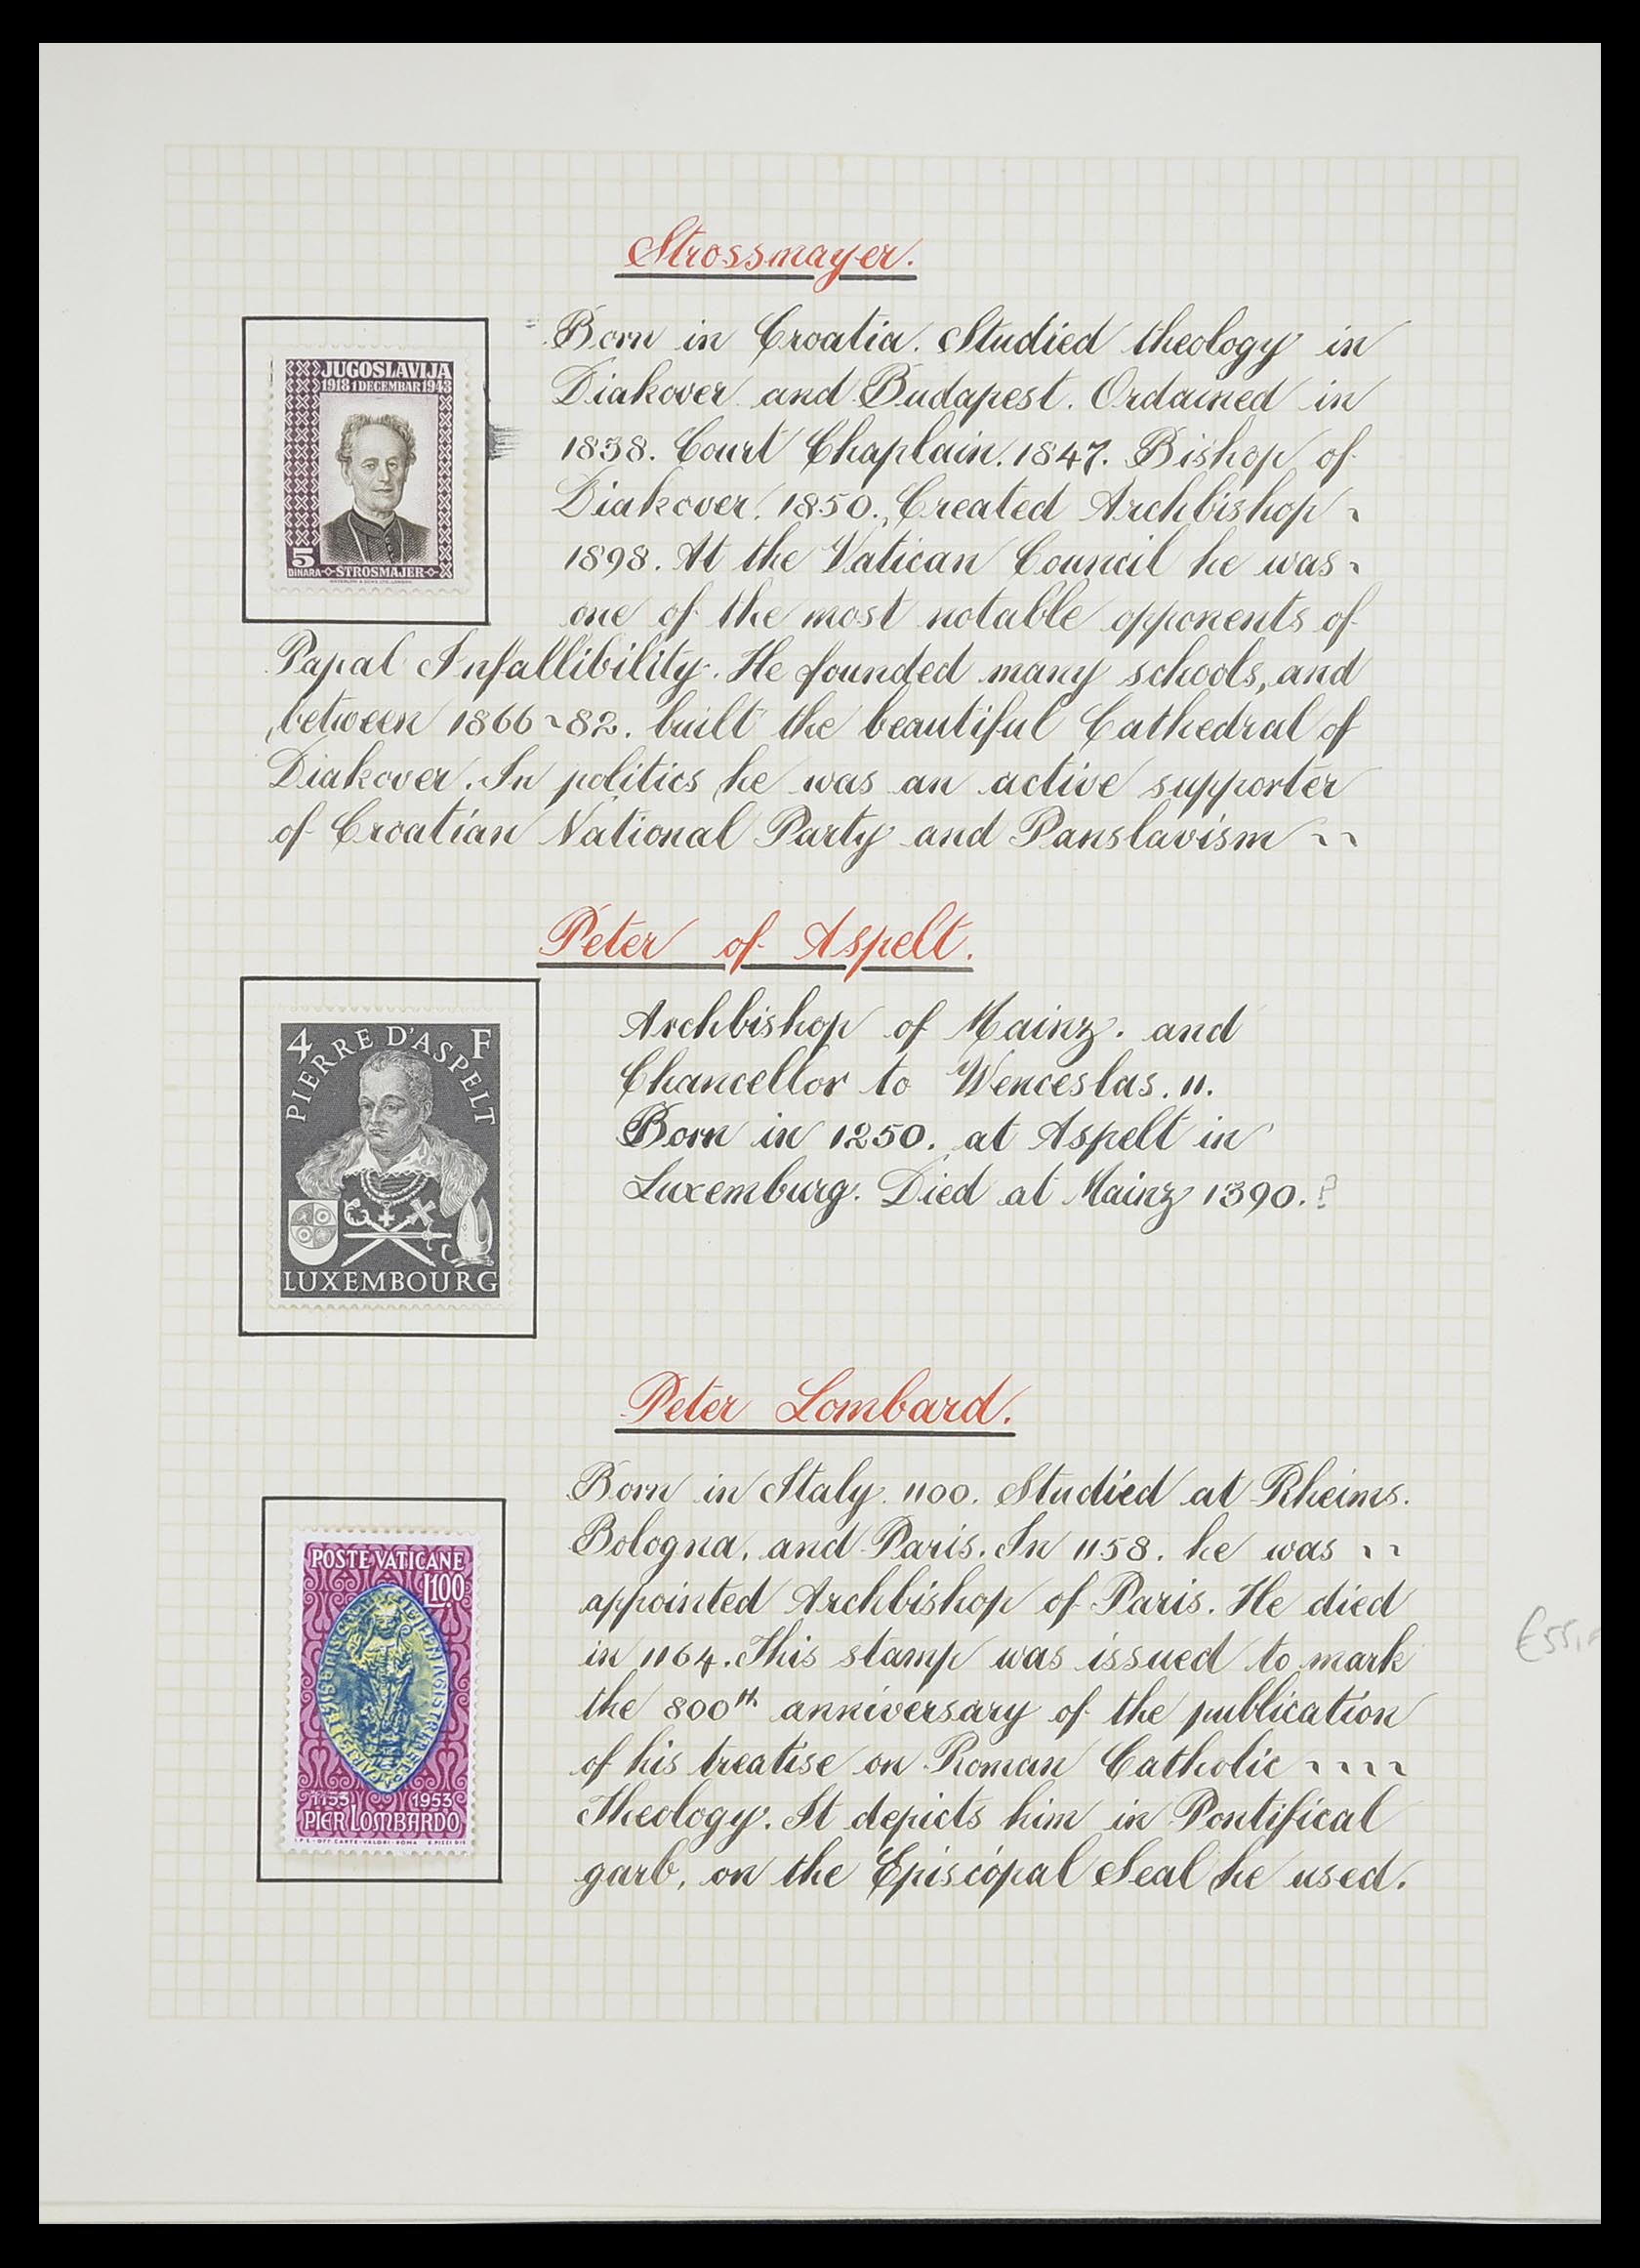 Strossmayer.
JUGOSLAVIJA
1918 1 DECEMBAR 1943
5
DINARA STROSMAJER
Born in Croatia. Studied theology in
Diakover and Budapest. Ordained in
1838. Court Chaplain. 1847. Bishop of
Diakover. 1850. Created Archbishop ~
1898. At the Vatican Council he was ~
one of the most notable opponents of
Papal Infallibility. He founded many schools, and
between 1866~82. built the beautiful Cathedral of
Diakover. In politics he was an active supporter
of Croatian National Party and Panslavism ~~
Peter of Aspelt.
4 F
PIERRE D'ASPELT
LUXEMBOURG
Archbishop of Mainz. and
Chancellor to Wenceslas. 11.
Born in 1250. at Aspelt in
Luxemburg. Died at Mainz 1390. ?
Peter Lombard.
POSTE VATICANE
L100
1153 1953
PIER LOMBARDO
Born in Italy. 1100. Studied at Rheims.
Bologna, and Paris. In 1158. he was ~~
appointed Archbishop of Paris. He died
in 1164. This stamp was issued to mark
the 800th anniversary of the publication
of his treatise on Roman Catholic ~~~~
Theology. It depicts him in Pontifical
garb, on the Episcopal Seal he used.